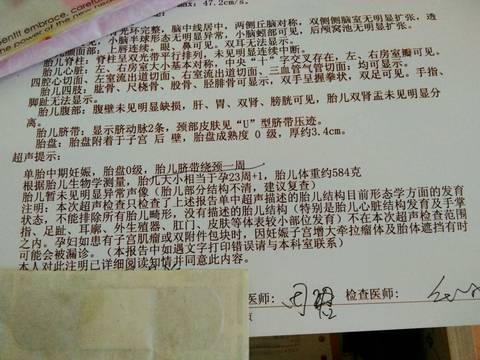 nentl embrace, careful
the power of the new
max= 47.2cm/s.
光环完整，脑中线居中，两侧丘脑对称，双侧侧脑室无明显扩张，透
小脑半球形态无明显异常，小脑蚓部可见，后颅窝池无明显扩张。
胎儿面部：上唇连续。眼、鼻可见。双耳无法显示。
胎儿脊柱：脊柱呈双光带平行排列，未见明显连续中断。
胎儿心脏：左、右房室大小基本对称，中央“十”字交叉存在，左、右房室瓣可见。
四腔心切面、左室流出道切面、右室流出道切面、三血管气管切面，均可显示。
胎儿四肢：肱骨、尺桡骨、股骨、胫腓骨可显示，双手呈握拳状，双足可见。手指、
脚趾无法显示。
胎儿腹部：腹壁未见明显缺损，肝、胃、双肾、膀胱可见，胎儿双肾盂未见明显分
离。
胎儿脐带：显示脐动脉2条，颈部皮肤见“U”型脐带压迹。
胎盘：胎盘附着于子宫 后 壁，胎盘成熟度 0 级，厚约3.4cm。
超声提示：
单胎中期妊娠，胎盘0级，胎儿脐带绕颈一周
根据胎儿生物学测量，胎儿大小相当于孕23周+1，胎儿体重约584克
胎儿暂未见明显异常声像（胎儿部分结构不清，建议复查）
注明：本次超声检查只检查了上述报告单中超声描述的胎儿结构目前形态学方面的发育
状态，不能排除所有胎儿畸形，没有描述的胎儿结构（特别是胎儿心脏结构发育及手掌
指、足趾、耳廓、外生殖器、肛门、皮肤等体表较小部位发育）不在本次超声检查范围
之内。孕妇如患有子宫肌瘤或双附件包块时，因妊娠子宫增大牵拉瘤体及胎体遮挡有时
可能会被漏诊。（本报告中如遇文字打印错误请与本科室联系）
本人对此注明已详细阅读知情并同意此内容。
医师：
检查医师：